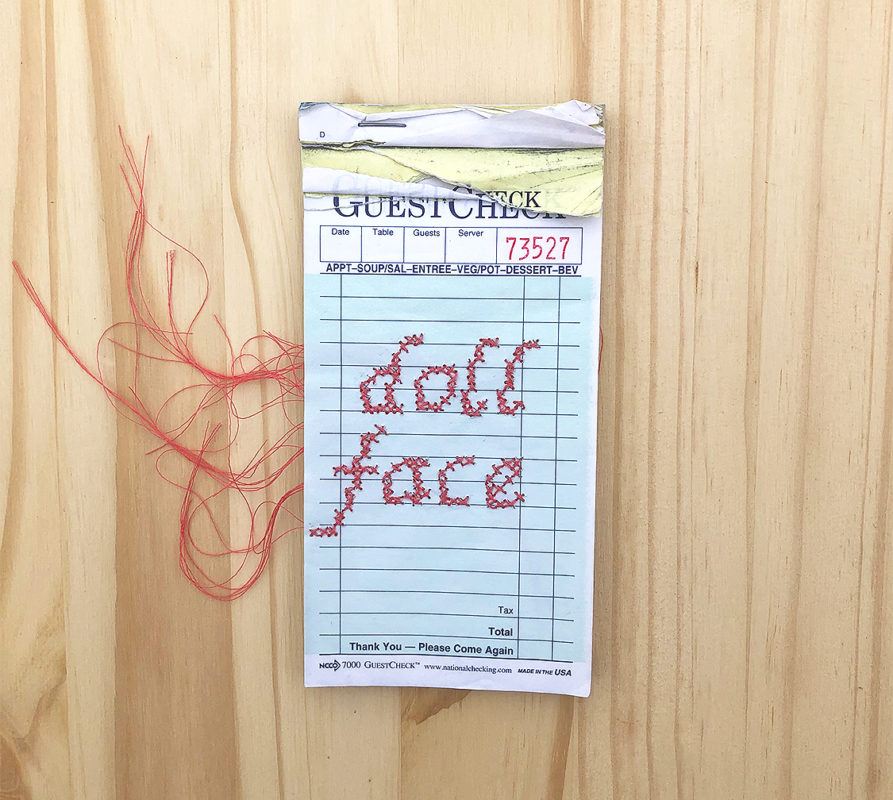 D
GUESTCHECK
Date Table Guests Server 73527
APPT–SOUP/SAL–ENTREE–VEG/POT–DESSERT–BEV
doll
face
Tax
Total
Thank You — Please Come Again
NCCO 7000 GUESTCHECK™ www.nationalchecking.com MADE IN THE USA